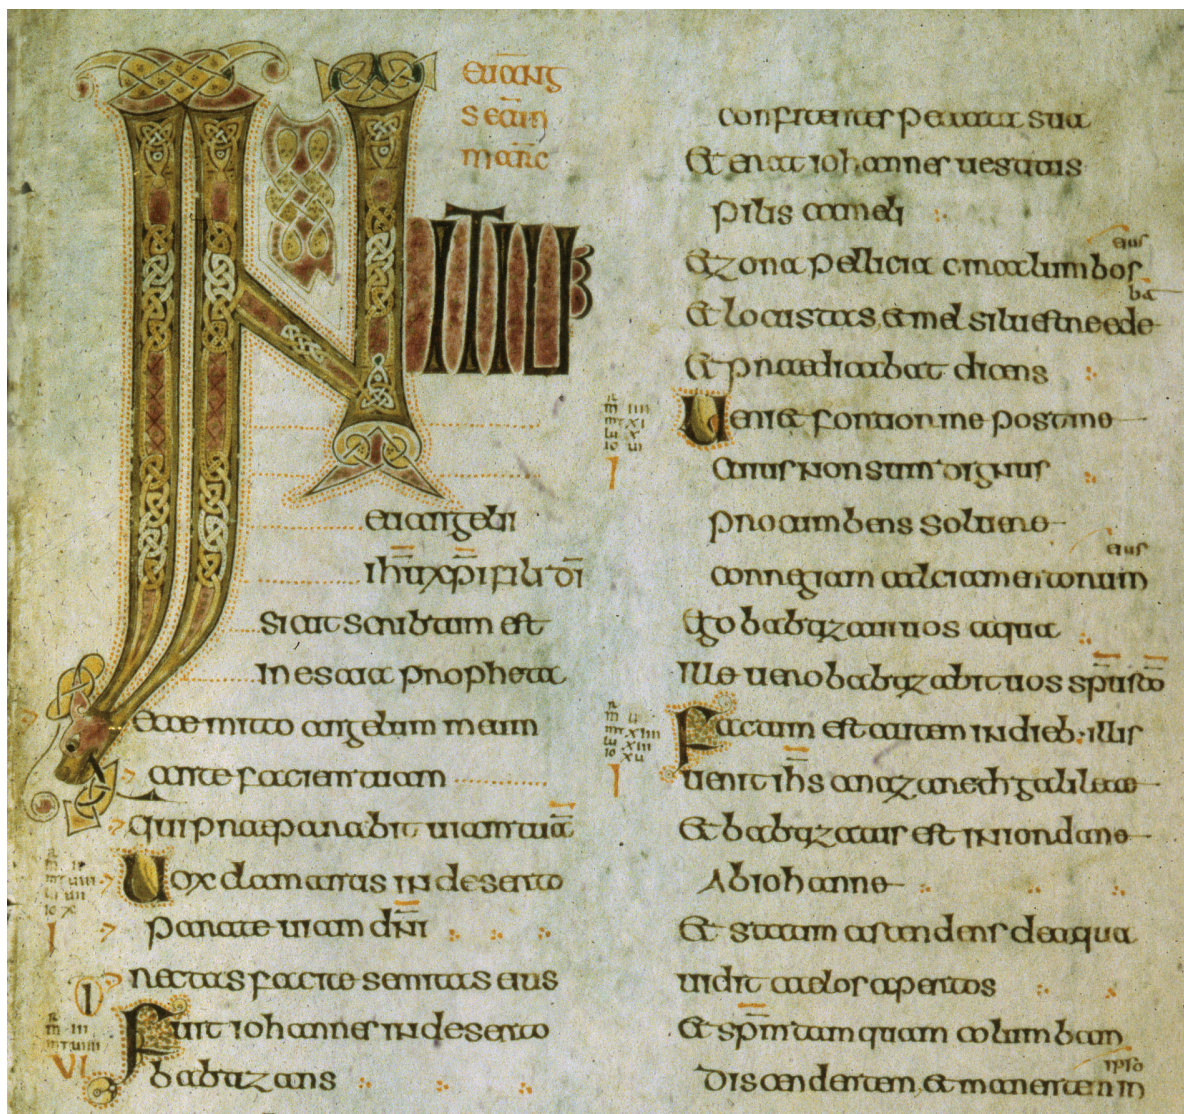 euang
secun
marc
INITIUM
euangelii
ihu xpi fili di
sicut scribtum est
in esaia propheta
ecce mitto angelum meum
ante faciem tuam
qui praeparabit uiam tuā
Uox clamantis in deserto
parate uiam dn̄i
rectas facite semitas eius
Fuit iohannes in deserto
babtizans
confitentes peccata sua
Et erat iohannes uestitus
pilis cameli
Et zona pellicia circa lumbos eius
Et locustas et mel siluestre edeba
Et praedicabat dicens
Uenit fortior me post me
cuius non sum dignus
procumbens soluere
corregiam calciamentorum eius
Ego babtizaui uos aqua
Ille uero babtizabit uos sp̄u sc̄o
Factum est autem in dieb: illis
uenit ih̄s a nazareth galileae
Et babtizatus est in iordane
Ab iohanne
Et statim ascendens de aqua
uidit caelos apertos
Et sp̄m tamquam columbam
Discendentem et manentem in ipso